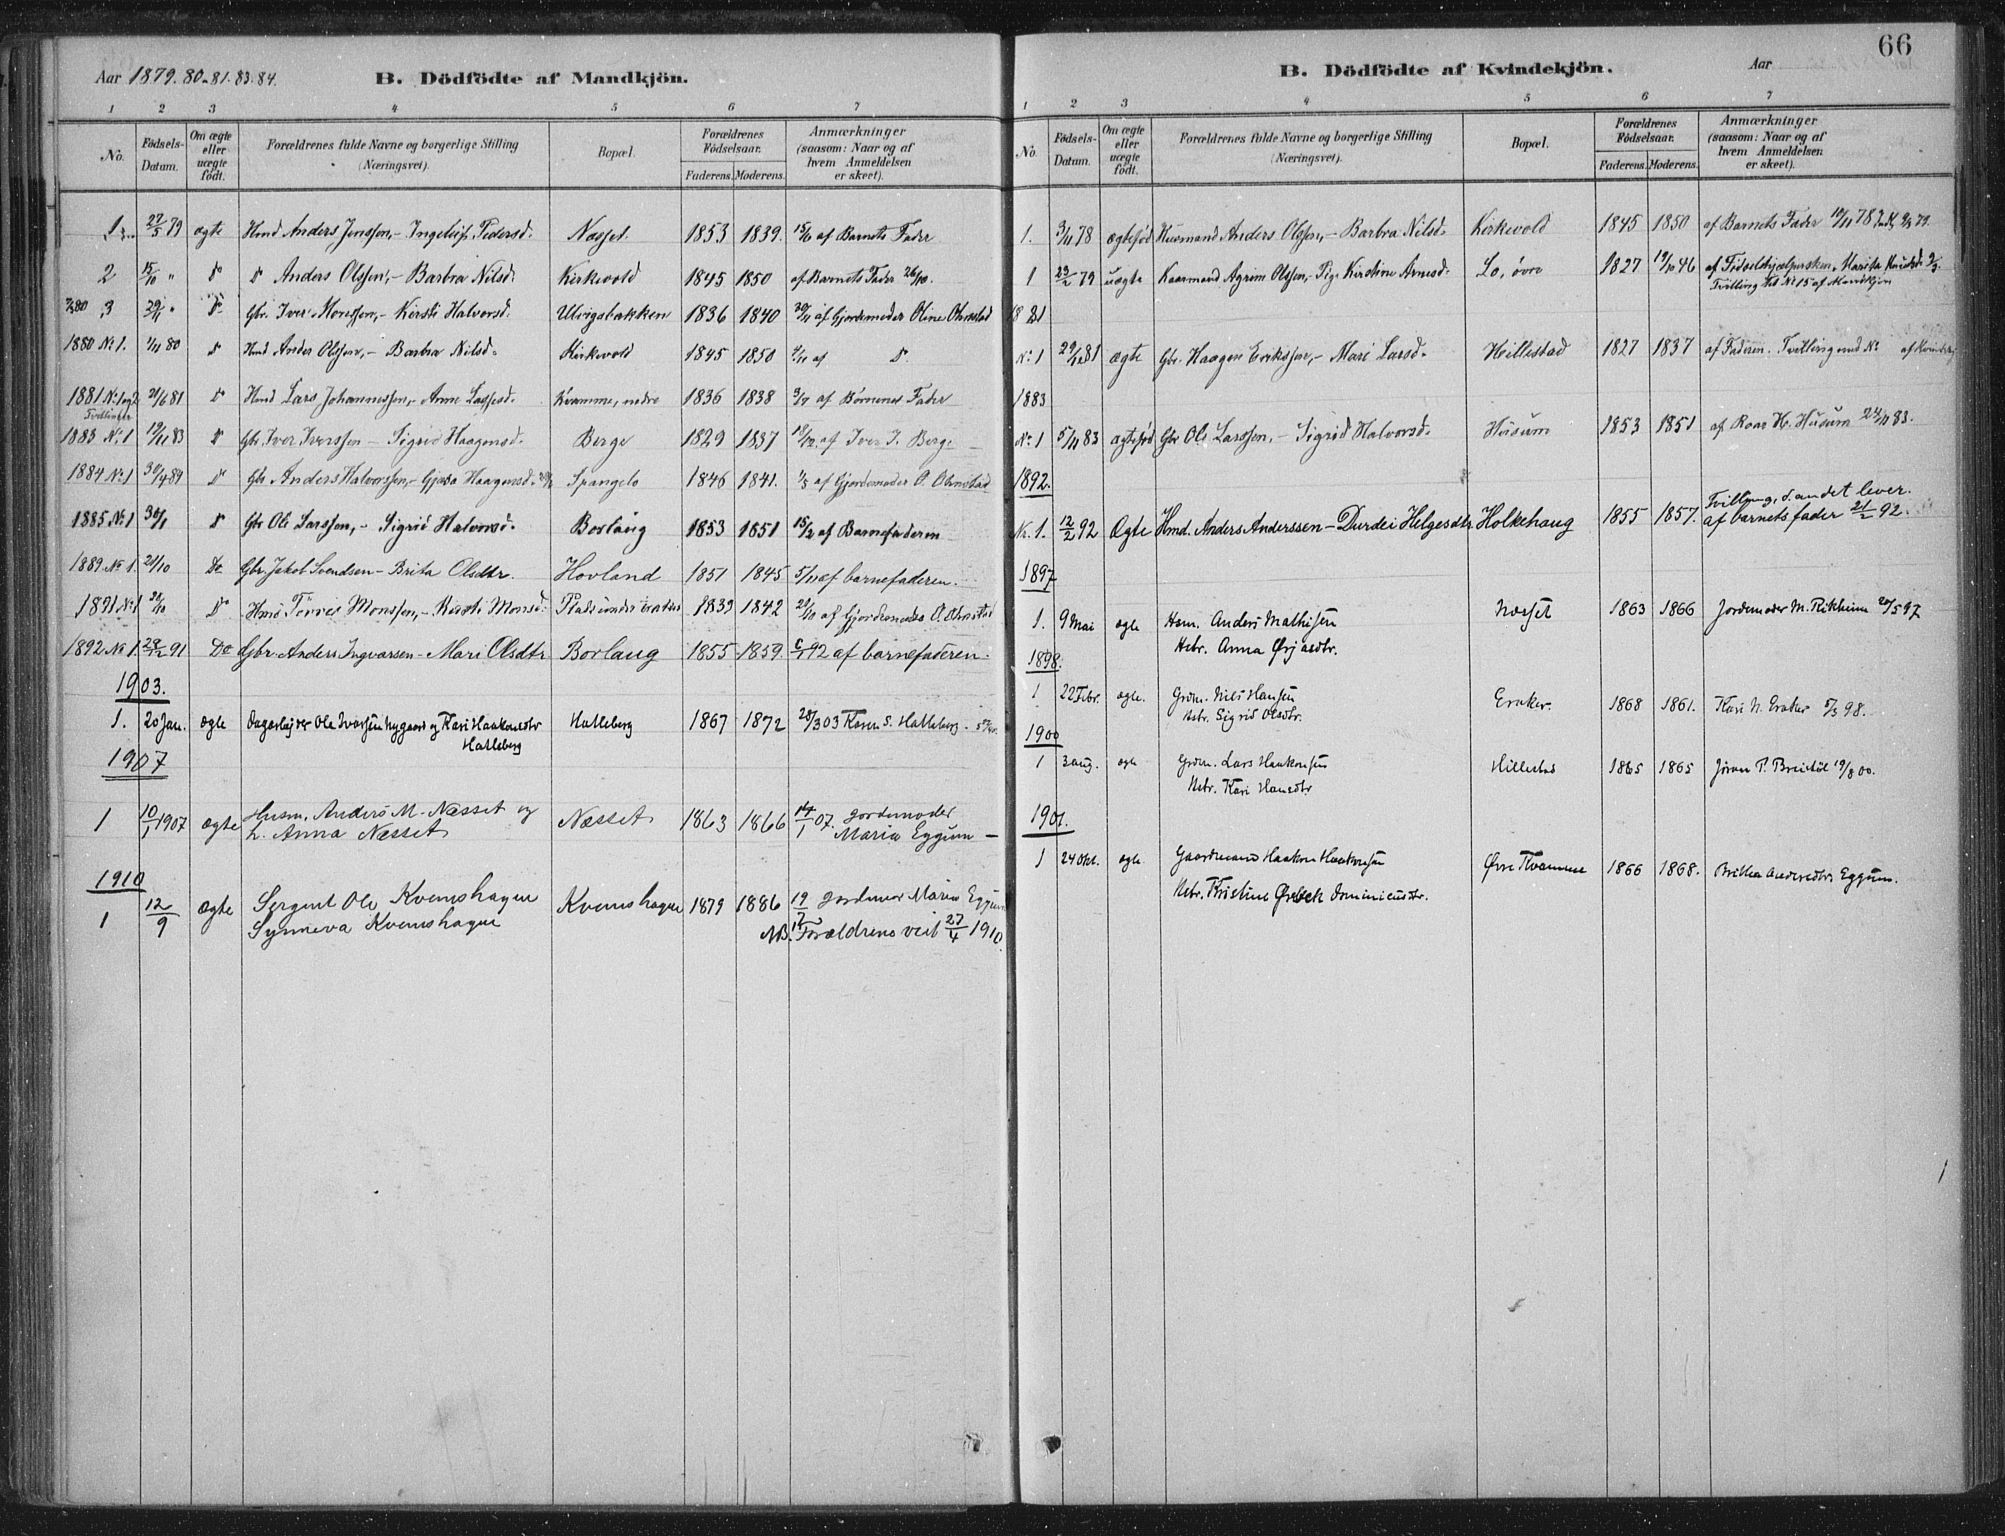 66
Aar 1879. 80. 81. 83. 84.
B. Dödfödte af Mandkjön.
1 2 3 4 5 6 7
No.
Födsels-Datum.
Om ægte eller uægte födt.
Forældrenes fulde Navne og borgerlige Stilling (Næringsvei).
Bopæl.
Forældrenes Födselsaar.
Faderens. Moderens.
Anmærkninger (saasom: Naar og af hvem Anmeldelsen er skeet).
1 27/5 79 ægte Hmd Anders Jenssen, - Pedersd. Næsset. 1853 1839. 15/6 af Barnets Fader
2 15/10 " D Anders Olssen, - Barbra Nilsd. Kirkevold 1845 1850 af Barnets Fader 26/10.
3 29/11 " D Gbr. Iver Monssen, - Kirsti Halvorsd. Ulvigsbakken 1836 1840 af Gjordemoder Oline Olmstad
1880 No 1. 1/11 80 D Hmd Anders Olssen, - Barbra Nilsd. Kirkevold 1845 1850 af D.
1881 No 1 og 2 21/6 81 D Hmd Lars Johannessen, - Anne Lassesd. Kvamme, nedre 1836 1838 3/7 af Börnenes Fader
Tvillinger
1883 No 1 12/11 83 D Gbr. Iver Iverssen - Sigrid Haagensd. Berge 1829 1837 18/12 af Iver I. Berge
1884 No 1 D Gbr Anders Halvorssen, - Haagensd. Spangelo 1846 1841. 1/5 af Gjordemoder O. Olmstad
1885 No 1 30/1 D Gbr Ole Larssen, - Sigrid Halvorsd. Borlaug 1853 1851 15/2 af Barnefaderen
1889 No 1. 21/10 Do Gbr. Jakob Svendsen - Brita Olsdtr. Hovland 1851 1845 5/11 af barnefaderen.
1891 No 1 D Hmd Monssen, - Kirsti Monsd. 1839 1842 af Gjordemoder O. Olmstad
1892 No 1. 28/12 91 Do Gbr. Anders Ingvarsen - Mari Olsdtr Borlaug 1855 1859 92 af barnefaderen.
1903.
1. 20 Jan. ægte Dagarbeider Ole Ivarsen Nygaard og Kari Haakonsdtr Hatleberg 1867 1872 28/3 03 Karen S. Hatleberg.
Hatleberg
1907
1 10/1 1907 ægte Husm. Anders M. Næsset og Næsset 1863 1866 14/1 07. Jordemoder
h. Anna Næsset Maria Eggum -
1910
1 12/9 ægte Sergent Ole Kvemshagen Kvemshagen 1879 1886 19/ Jordemor Maria Eggum
Synneva Kvemshagen NB. Forældrene viet 27/4 1910.
B. Dödfödte af Kvindekjön.
Aar
1 2 3 4 5 6 7
No.
Födsels-Datum.
Om ægte eller uægte födt.
Forældrenes fulde Navne og borgerlige Stilling (Næringsvei).
Bopæl.
Forældrenes Födselsaar.
Faderens. Moderens.
Anmærkninger (saasom: Naar og af hvem Anmeldelsen er skeet).
1. 3/11 78 ægtefød Huusmand Anders Olssen, - Barbra Nilsd. Kirkevold 1845 1850 af Barnets Fader 10/11 78
1 23/2 79 uægte Kaarmand Agrim Olssen, - Pige Kirstine Arnesd. Lo, øvre 1827 19/10 46 af Fødselshjælpersken, Marita
Tvilling til No 15 af Mandkjøn
1881
No 1 29/12 81 ægte Gbr. Haagen Erikssen, - Mari Larsd. Hillestad 1827 1837 af Faderen. Tvilling med No af Kvindekj.
1883
No 1 5/11 83 ægtefød Gbr Ole Larssen, - Sigrid Halvorsd. Husum 1853 1851 af Roar H. Husum 24/11 83.
1892.
No. 1. 12/2 92 Ægte Hmd. Anders Anderssen - Durdei Helgesdtr Holkehaug 1855 1857. Tvilling, d. andet lever.
af barnets fader 21/2 92.
1897
1. 9 Mai ægte Hsm. Anders Mathisen Næsset 1863 1866 Jordemoder M. Rikheim 20/5 97
Hstr. Anna
1898.
1 22 Febr. ægte. Grdm. Nils Hansen Eraker. 1868 1861. Kari N. Eraker 5/3 98.
Hstr. Sigrid Olsdtr.
1900
1 3 Aug. ægte Grdm. Lars Haakonsen Hillestad 1865 1865 Jøran P. 19/8 00.
Hstr. Kari Hansdtr
1901.
1 24 Okt. ægte Gaardmand Haakon Haakonsen Øvre Kvamme 1866 1868. Brithe Andersdtr. Eggum.
Hstr. Kristine Dominicusdtr.